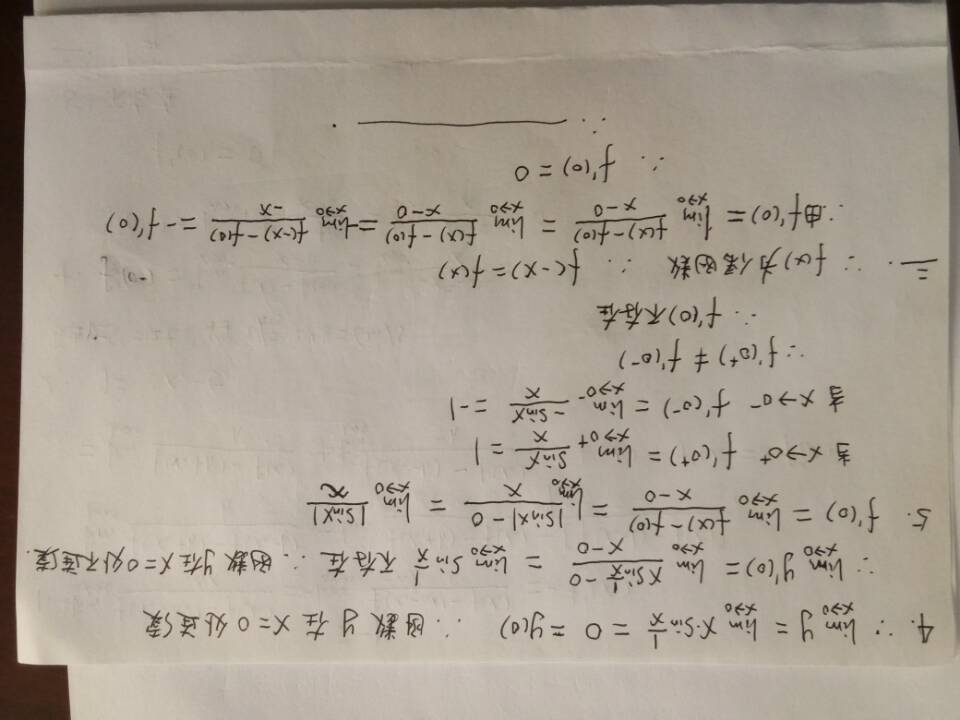 4. ∵ lim_{x→0} y = lim_{x→0} x·sin 1/x = 0 = y(0) ∴ 函数 y 在 x=0 处连续
∵ lim_{x→0} y'(0) = lim_{x→0} (x sin 1/x − 0)/(x−0) = lim_{x→0} sin 1/x 不存在 ∴ 函数 y 在 x=0 处不连续.
5. f'(0) = lim_{x→0} (f(x)−f(0))/(x−0) = lim_{x→0} (|sinx|−0)/x = lim_{x→0} |sinx|/x
当 x→0⁺ f'(0⁺) = lim_{x→0⁺} sinx/x = 1
当 x→0⁻ f'(0⁻) = lim_{x→0⁻} −sinx/x = −1
∵ f'(0⁺) ≠ f'(0⁻)
∴ f'(0) 不存在
三. ∵ f(x) 为偶函数 ∴ f(−x) = f(x)
∴ 由 f'(0) = lim_{x→0} (f(x)−f(0))/(x−0) = lim_{x→0} (f(x)−f(0))/(x−0) = −lim_{x→0} (f(−x)−f(0))/(−x) = −f'(0)
∴ f'(0) = 0
∴ ________ .